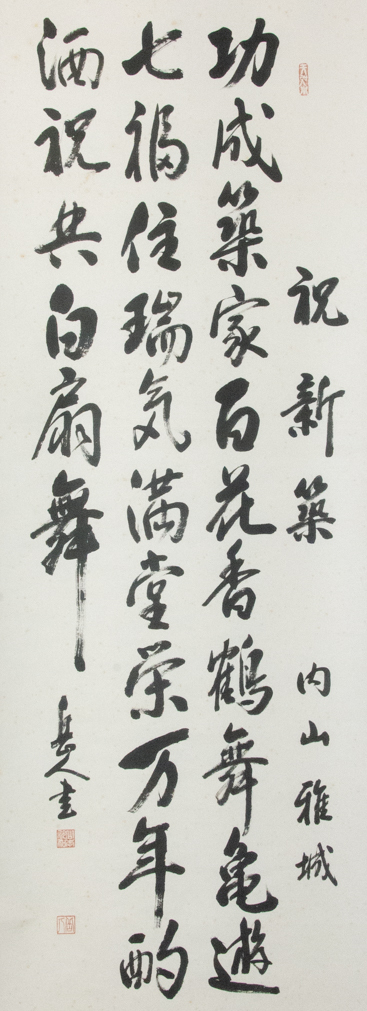 祝新築 内山雅城
功成築家百花香鶴舞亀遊
七福住瑞気満堂栄万年酌
酒祝共白扇舞
岳人書